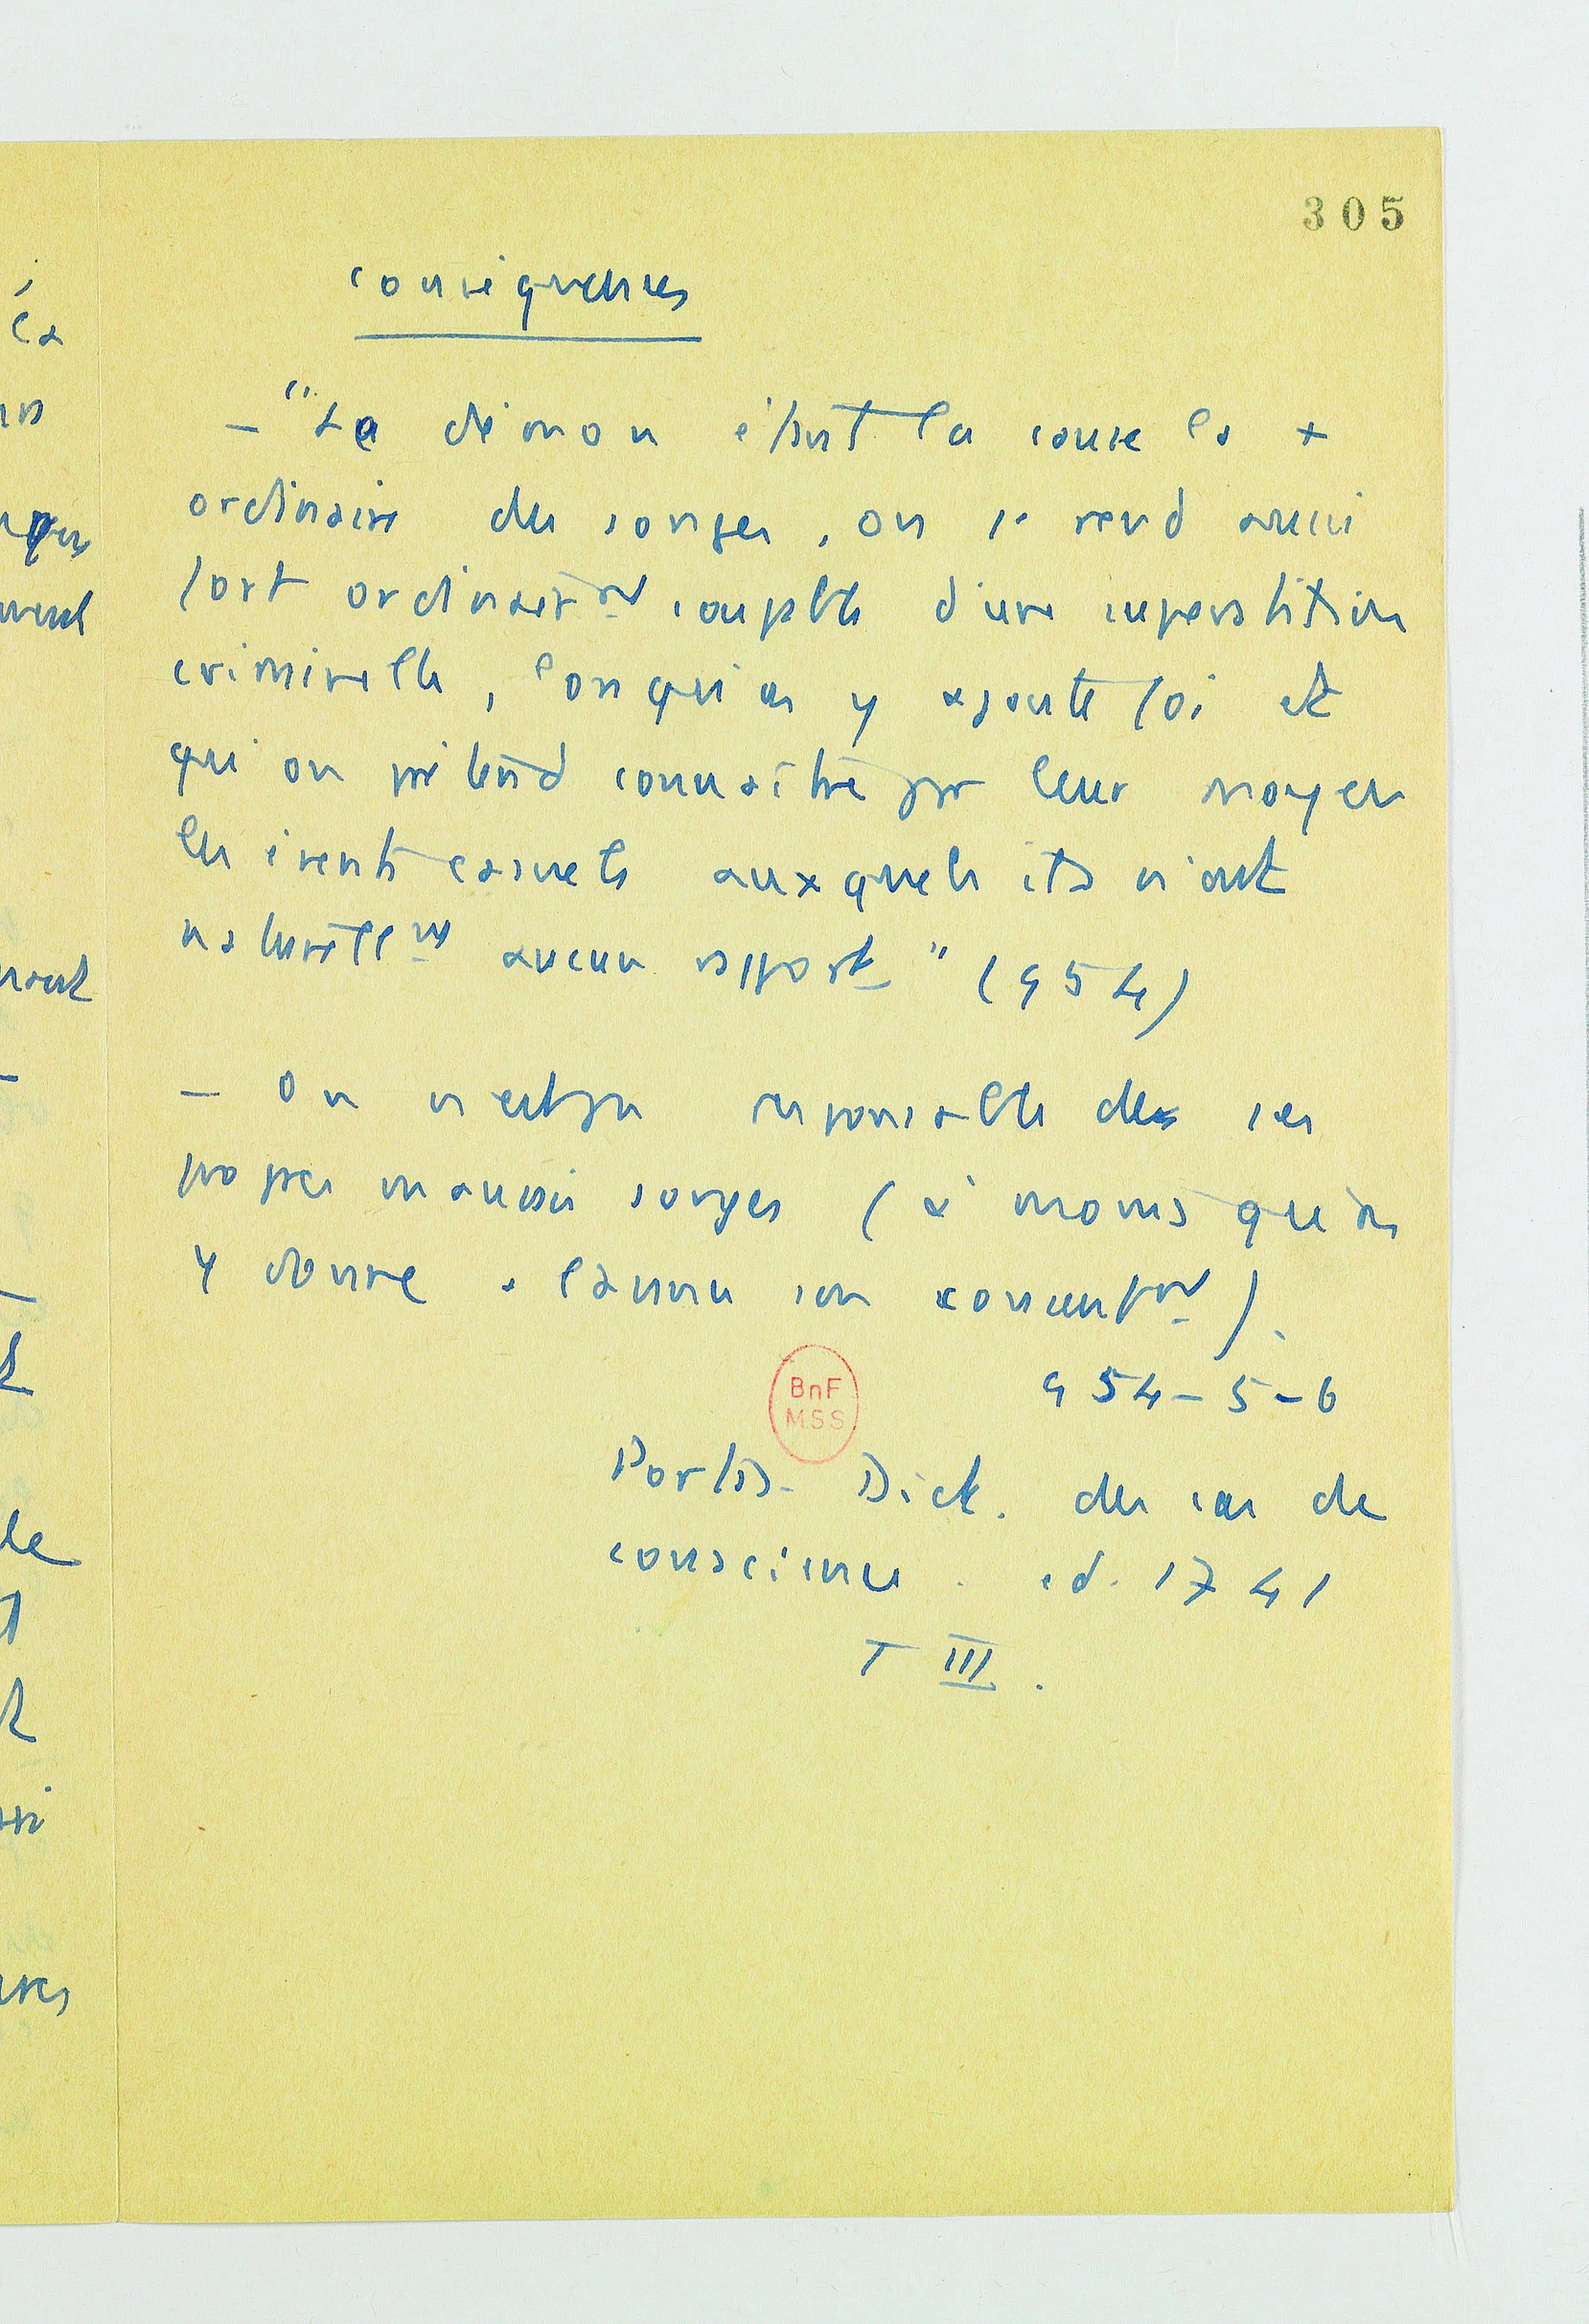 305
conséquences
- "Le démon étant la cause la +
ordinaire des songes, on se rend aussi
fort ordinairmt coupable d'une superstition
criminelle, lorsqu'on y ajoute foi et
qu'on prétend connaître par leur moyen
les évents casuels auxquels ils n'ont
naturellmt aucun rapport" (954)
- On n'est pas responsable de ses
propres mauvais songes (à moins qu'on
y donne son consentmt).
954-5-6
BnF
MSS
Pontas. Dict. des cas de
conscience. éd. 1741
T III.